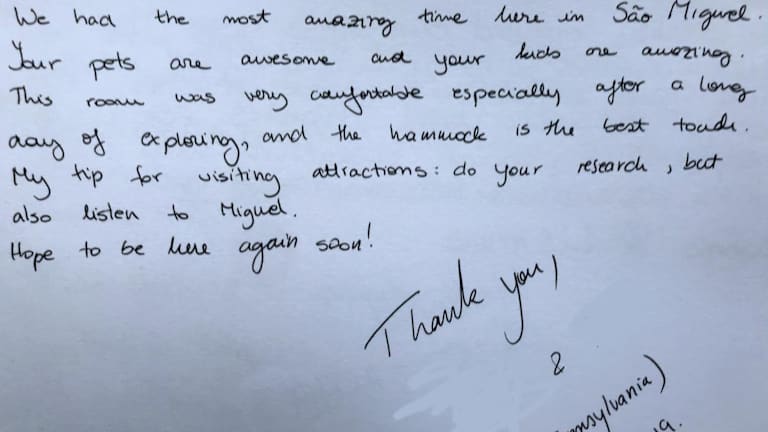 We had the most amazing time here in São Miguel.
Your pets are awesome and your kids are amazing.
This room was very comfortable especially after a long
day of exploring, and the hammock is the best touch.
My tip for visiting attractions: do your research, but
also listen to Miguel.
Hope to be here again soon!
Thank you,
&
nsylvania)